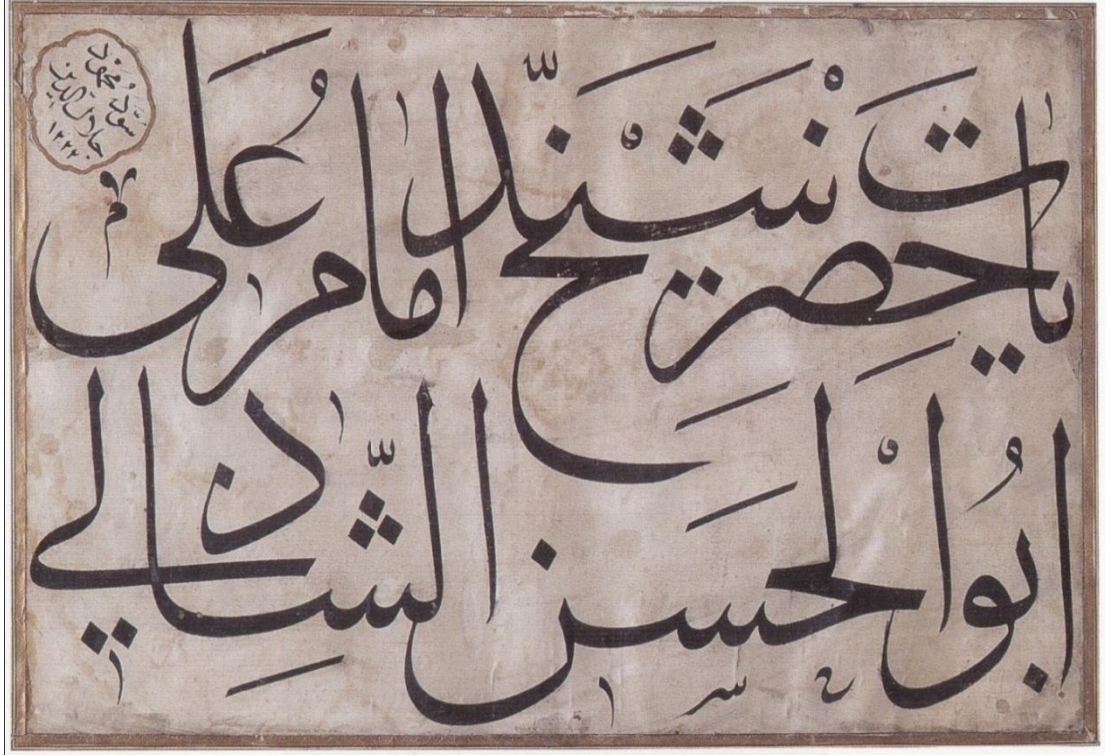 يا حضرت شيخ امام علي
ابو الحسن الشاذلي
سوده محمود
جلال الدين
١٢٢٢